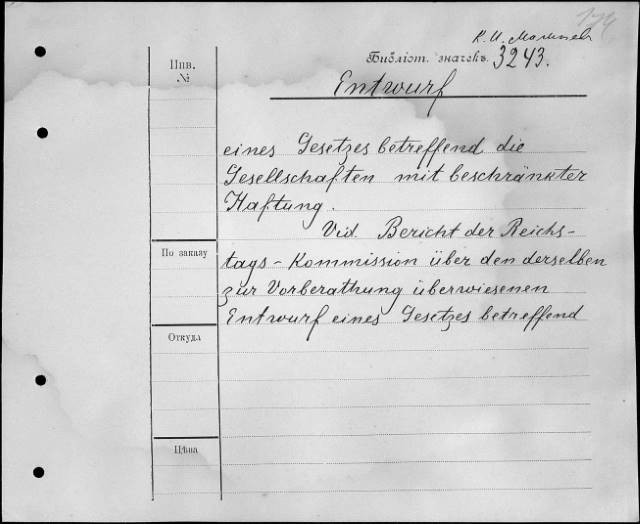 174
К. И. Малышев
Инв.
№
Библіот. значекъ 3243.
Entwurf
eines Gesetzes betreffend die
Gesellschaften mit beschränkter
Haftung.
Vid. Bericht der Reichs-
tags-Kommission über den derselben
zur Vorberathung überwiesenen
Entwurf eines Gesetzes betreffend
По заказу
Откуда
Цѣна